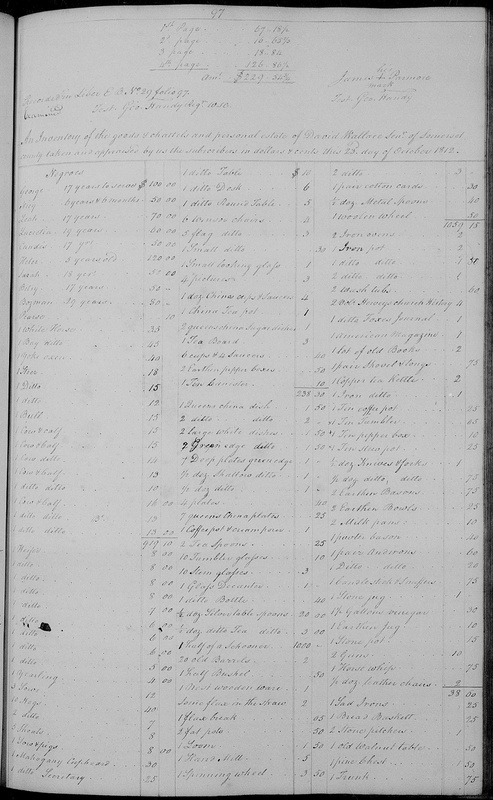 97
1st Page 67.18½
2d page
3 page 18.84
4th page 126.86½
Amt $229.54½
James his + mark
Test. Geo. Handy
Recorded in Liber E B No 29 folio 97.
Examined
Test. Geo. Handy Regr
An Inventory of the goods & chattels and personal estate of David Wallace Senr. of Somerset
county taken and appraised by us the subscribers in dollars & cents this 23d day of October 1812.
Negroes
George 17 years to serve $100 00
6 years & 6 months 50 00
17 years 70 00
19 years 60 00
17 yrs 50 00
5 years old 120 00
18 yrs
17 years 50
19 years 80
Horse 10
1 White Horse 35
1 Bay ditto 45
1 yoke oxen 40
1 Steer 18
1 Ditto 15
1 ditto 12
1 Bull 15
1 Cow & calf 15
1 Cow & calf 15
1 Cow ditto 14
1 Cow & calf 13
1 ditto ditto 10
1 Cow & calf 16 00
1 ditto ditto 13
1 ditto ditto 13 00
919 10
Heifer 8 50
1 ditto 8 00
1 ditto 8 00
1 ditto 8 00
1 ditto 7 00
1 ditto 6 00
1 ditto 6 00
1 ditto 6 00
1 ditto 5 00
1 Yearling 4 00
3 Sows 12
10 Hogs 40
2 ditto 7
3 Shoats 8
1 Sow & pigs 8 00
1 Mahogany Cupboard 30
1 ditto Secretary 25
1 ditto Table $10
1 ditto Desk 6
1 ditto Round Table 5
6 Windsor chairs 4
5 flag ditto 3
1 Small ditto 30
1 Small looking glass 1
4 pictures 3
1 doz China cups & Saucers 4
1 China Tea pot 1
2 queens china Sugar dishes 1
1 Tea Board 3
6 cups & 4 Saucers 40
2 Earthen pepper boxes 50
1 Tea Canister 10
238 30
1 Queens china dish 1 50
2 ditto ditto 2
2 large white dishes 1 50
7 Green edge ditto 4
7 Deep plates green edge 1
½ doz Shallow ditto 1
½ doz ditto 1
4 plates 40
7 queens China plates 25
1 Coffee pot & cream pore 1
2 Tea Spoons 25
10 Tumbler glasses 10
10 Stem glasses 3
1 Glass Decanter 1
1 ditto Bottle 40
½ doz Silver table spoons 20 00
½ doz ditto Tea ditto 3 00
1 half of a Schooner 1000
20 old Barrels 2
1 half Bushel 50
1 Brest wooden ware 1
Some flax in the Straw 2
1 flax break 65
2 fat pots 50
1 Loom 1 50
1 Hand Mill 5
1 Spinning wheel 3 50
2 ditto 3
1 pair cotton cards 30
½ doz Metal Spoons 40
1 woolen wheel 50
1859 15
2 Iron ovens 2
1 Iron pot 2
1 ditto ditto 1 50
2 ditto ditto 1
2 wash tubs 60
2 Vols. Henrys church History 4
1 ditto Foxes Journal 1
1 American Magazine 1
1 Lot of old Books 2
1 pair Shovel & tongs 75
1 Copper tea Kettle 2
1 Iron ditto 1
1 Tin coffee pot 25
1 Tin Tumbler 45
1 Tin pepper box 10
1 Tin stew pot 25
½ doz Knives & forks 1
½ doz ditto ditto 75
2 Earthen Basons 75
2 Earthen Bowls 25
2 Milk pans 10
1 puter bason 40
1 pair Andirons 60
1 Ditto ditto 20
1 Candle Stick & Snuffers 75
1 Stone jug 1
1½ Gallons vinegar 30
1 Earthen jug 10
1 Stone pot 15
2 Guns 10
1 Horse whip 75
½ doz leather chairs 2
38 00
1 Sad Irons 25
1 Bread Baskett 25
2 Stone pitchers 1
1 old Walnut table 50
1 pine Chest 1 50
1 Trunk 75